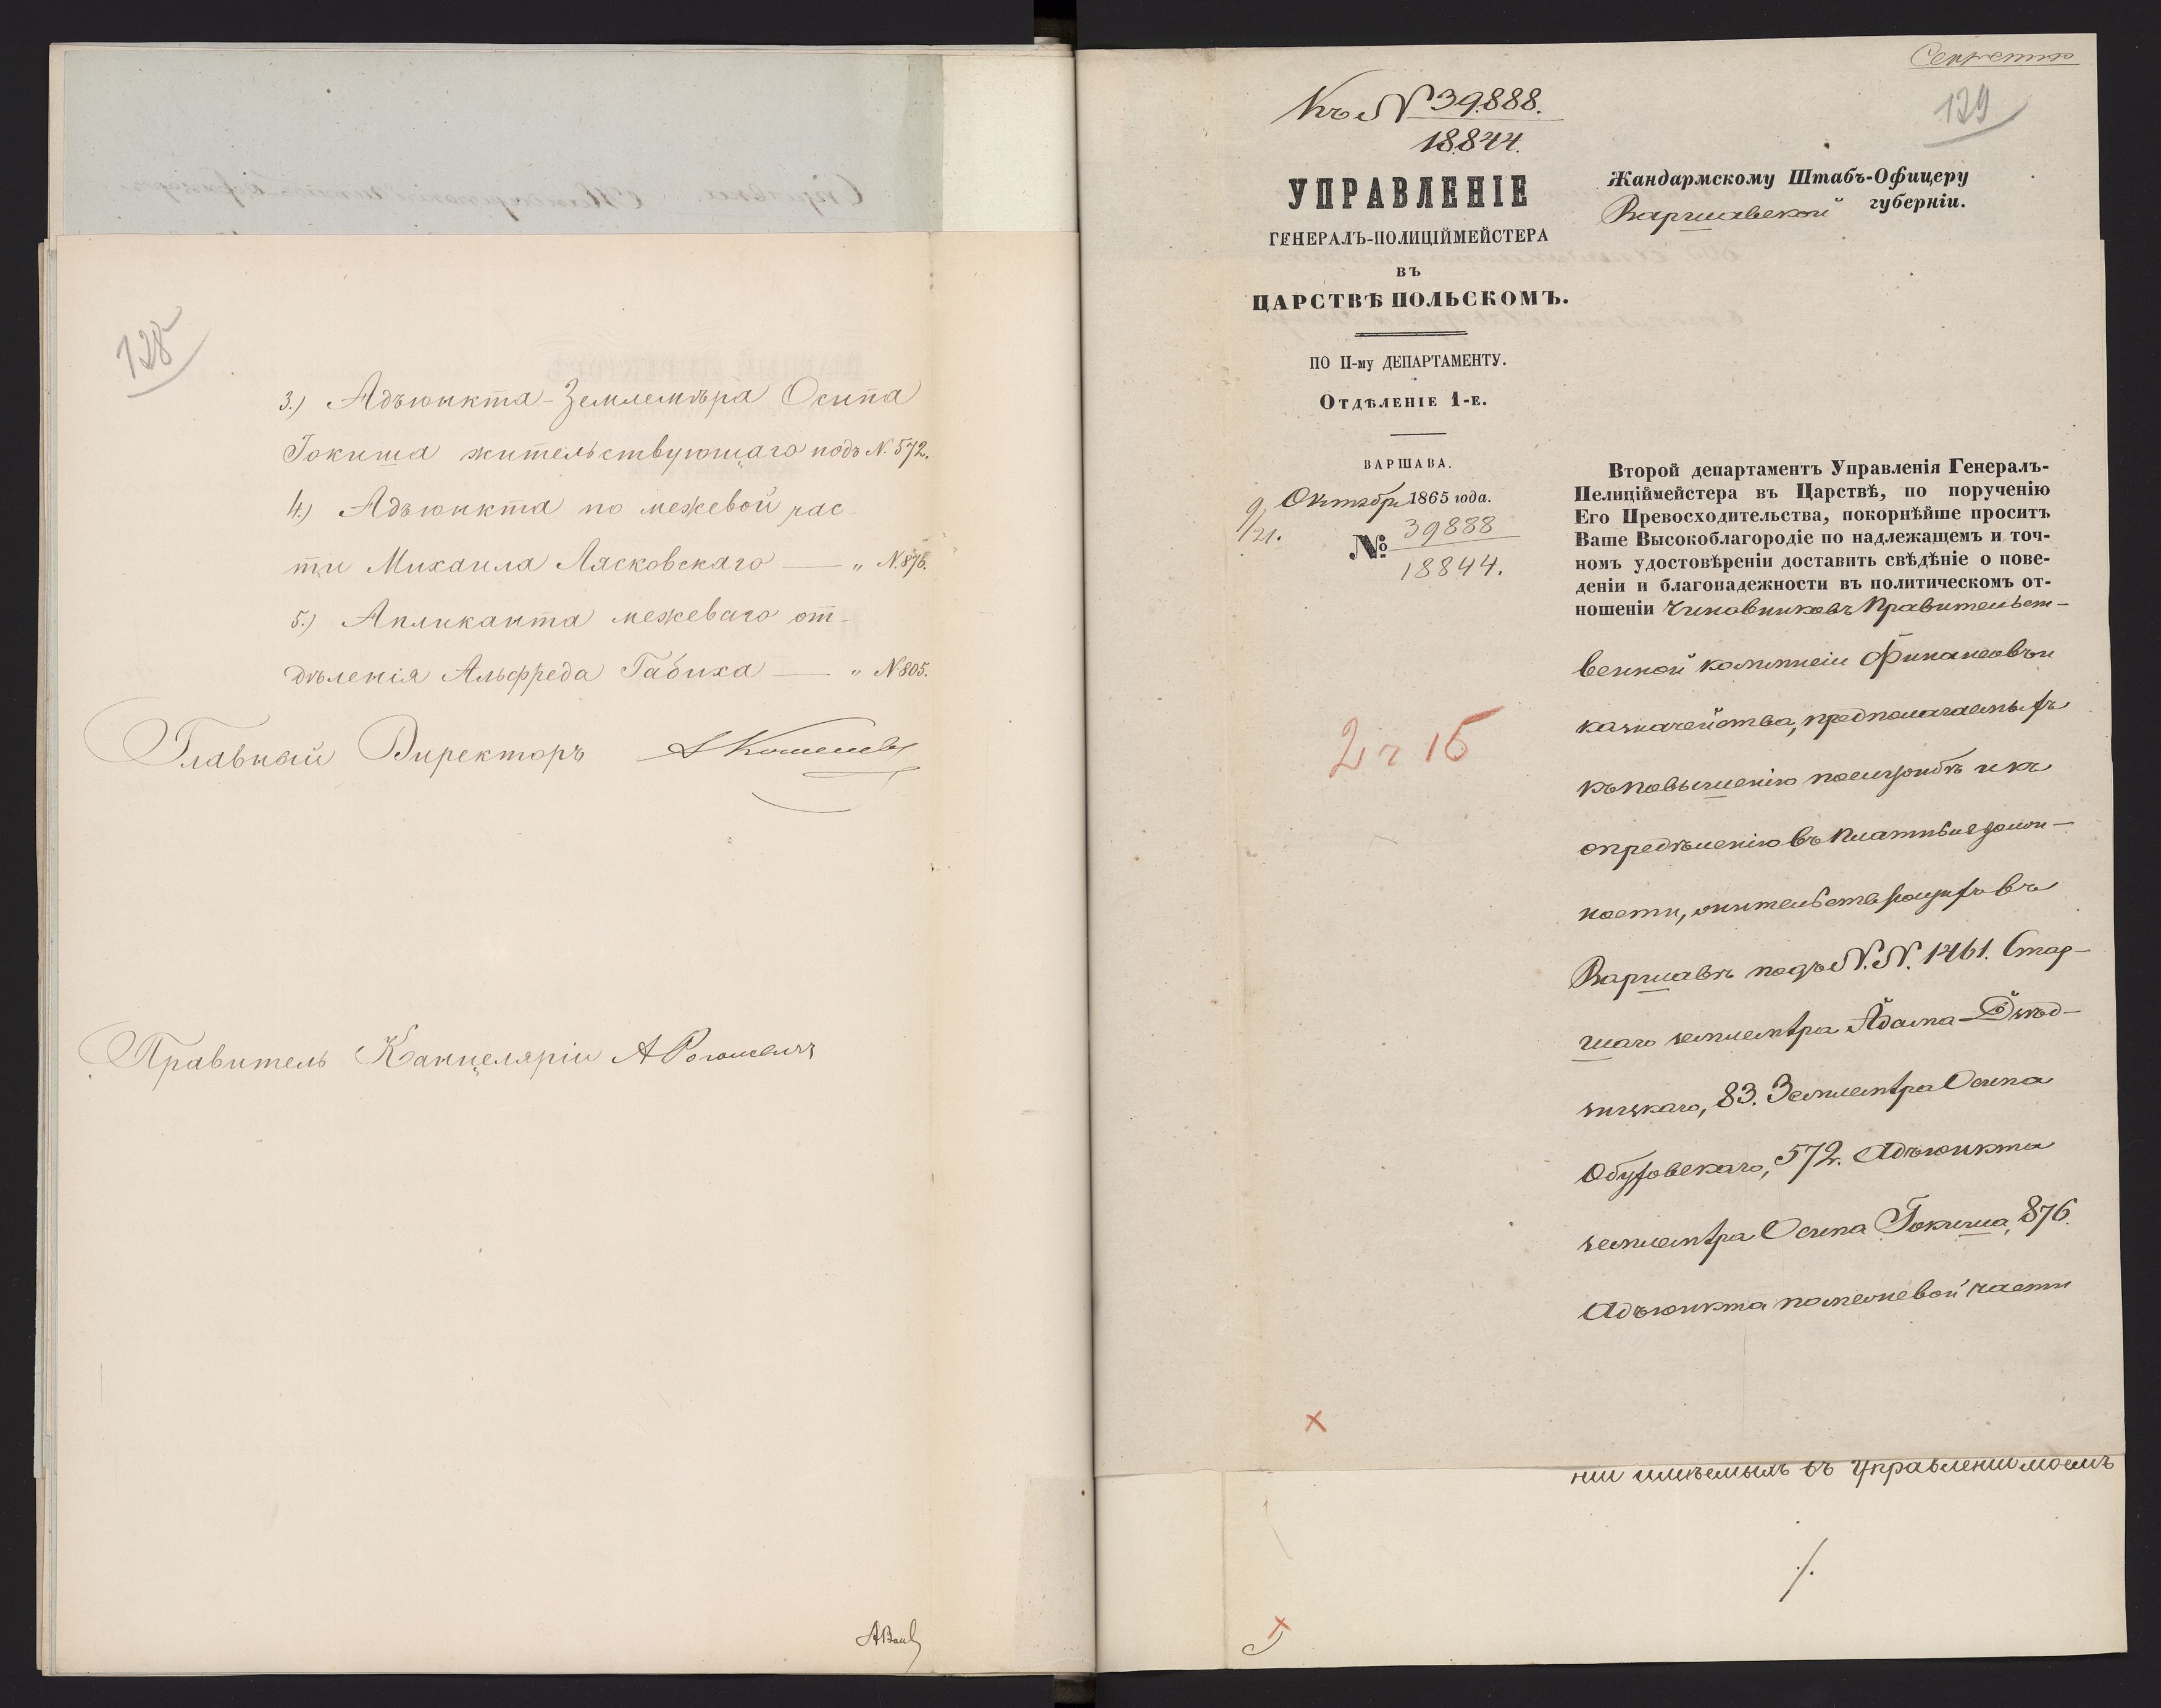 128
3.) Адъюнкта-Землемѣра Осипа
Гокиша жительствующаго подъ N. 572.
4.) Адъюнкта по межевой час-
ти Михаила Лясковскаго — " N. 876.
5.) Апликанта межеваго от-
дѣленія Альфреда Габиха — " N. 805.
Главный Директоръ
Правитель Канцеляріи А
Секретно
129
Къ N 39888.
18844.
УПРАВЛЕНІЕ
ГЕНЕРАЛЪ-ПОЛИЦІЙМЕЙСТЕРА
ВЪ
ЦАРСТВѢ ПОЛЬСКОМЪ.
ПО II-му ДЕПАРТАМЕНТУ.
Отдѣленіе 1-е.
ВАРШАВА.
9/21. Октябр 1865 года.
№ 39888
18844.
2 ч 15
Жандармскому Штабъ-Офицеру
Варшавской губерніи.
Второй департаментъ Управленія Генералъ-
Пелиціймейстера въ Царствѣ, по порученію
Его Превосходительства, покорнѣйше проситъ
Ваше Высокоблагородіе по надлежащемъ и точ-
номъ удостовѣреніи доставить свѣдѣніе о пове-
деніи и благонадежности въ политическомъ от-
ношеніи Чиновниковъ Правительст-
венной коммисіи Финансовъ и
казначейства, предполагаемыхъ
къ повышенію по службѣ и къ
опредѣленію въ платныя долж-
ности, жительствующихъ въ
Варшавѣ подъ N.N. 1461. Стар-
шаго землемѣра Адама
83. Землемѣра Осипа
Обуховскаго, 572. Адъюнкта
землемѣра Осипа Гокиша, 876.
Адъюнкта по межевой части
ніи имѣемымъ въ Управленіи моемъ
./.